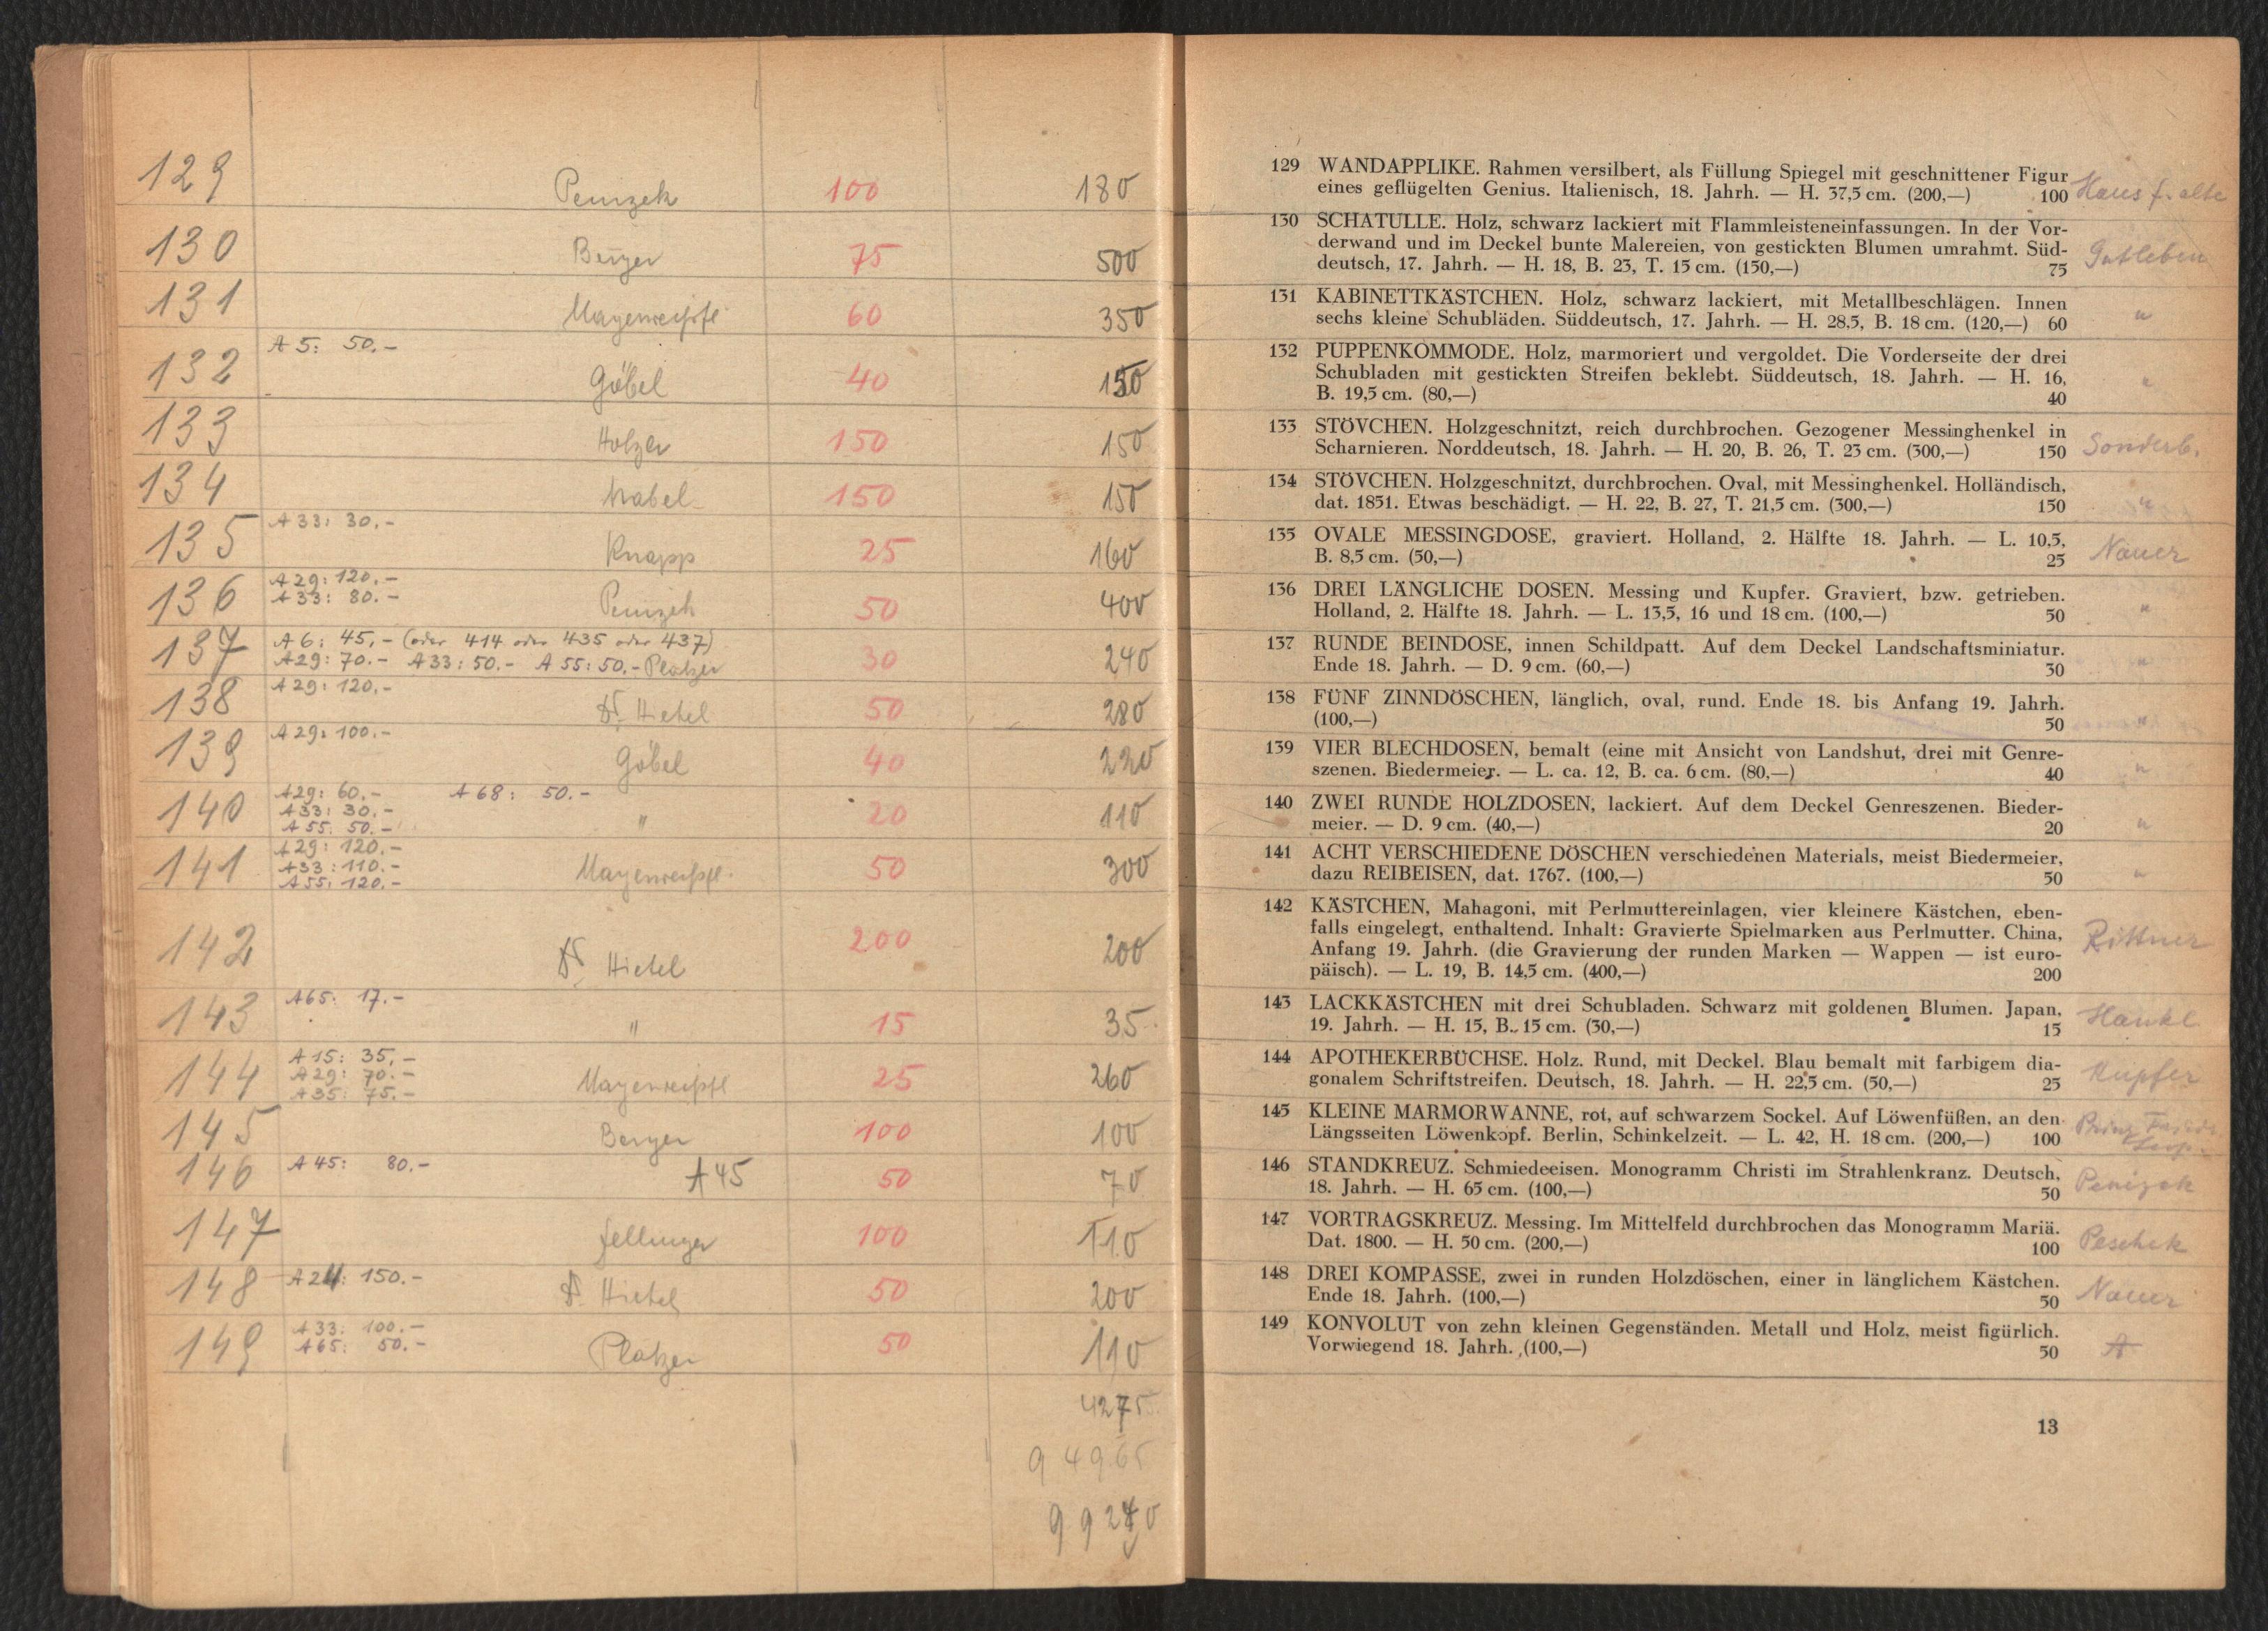 129 Penizek 100 180
130 Berger 75 500
131 Mayenreißtl 60 350
A 5: 50.-
132 Göbel 40 150
133 Holzer 150 150
134 Nabel 150 150
A 33: 30.-
135 Knapp 25 160
A 29: 120.-
136 A 33: 80.- Penizek 50 400
A 6: 45.- (oder 414 oder 435 oder 437)
137 A 29: 70.- A 33: 50.- A 55: 50.- Platzer 30 240
A 29: 120.-
138 Dr. Hietel 50 280
A 29: 100.-
139 Göbel 40 220
A 29: 60.- A 68: 50.-
140 A 33: 30.- " 20 110
A 55: 50.-
A 29: 120.-
141 A 33: 110.- Mayenreißtl 50 300
A 55: 120.-
142 Dr. Hietel 200 200
A 65: 17.-
143 " 15 35
A 15: 35.-
144 A 29: 70.- Mayenreißtl 25 260
A 35: 75.-
145 Berger 100 100
146 A 45: 80.- A 45 50 70
147 Fellinger 100 110
148 A 24: 150.- Dr. Hietel 50 200
A 33: 100.-
149 A 65: 50.- Platzer 50 110
4275
94965
99240
129 WANDAPPLIKE. Rahmen versilbert, als Füllung Spiegel mit geschnittener Figur
eines geflügelten Genius. Italienisch, 18. Jahrh. — H. 37,5 cm. (200,—) 100 Haus f. alte
130 SCHATULLE. Holz, schwarz lackiert mit Flammleisteneinfassungen. In der Vor-
derwand und im Deckel bunte Malereien, von gestickten Blumen umrahmt. Süd-
deutsch, 17. Jahrh. — H. 18, B. 23, T. 15 cm. (150,—) 75 Gutleben
131 KABINETTKÄSTCHEN. Holz, schwarz lackiert, mit Metallbeschlägen. Innen
sechs kleine Schubläden. Süddeutsch, 17. Jahrh. — H. 28,5, B. 18 cm. (120,—) 60 "
132 PUPPENKOMMODE. Holz, marmoriert und vergoldet. Die Vorderseite der drei
Schubladen mit gestickten Streifen beklebt. Süddeutsch, 18. Jahrh. — H. 16,
B. 19,5 cm. (80,—) 40 "
133 STÖVCHEN. Holzgeschnitzt, reich durchbrochen. Gezogener Messinghenkel in
Scharnieren. Norddeutsch, 18. Jahrh. — H. 20, B. 26, T. 23 cm. (300,—) 150 Sonderb.
134 STÖVCHEN. Holzgeschnitzt, durchbrochen. Oval, mit Messinghenkel. Holländisch,
dat. 1851. Etwas beschädigt. — H. 22, B. 27, T. 21,5 cm. (300,—) 150 "
135 OVALE MESSINGDOSE, graviert. Holland, 2. Hälfte 18. Jahrh. — L. 10,5,
B. 8,5 cm. (50,—) 25 Nauer
136 DREI LÄNGLICHE DOSEN. Messing und Kupfer. Graviert, bzw. getrieben.
Holland, 2. Hälfte 18. Jahrh. — L. 13,5, 16 und 18 cm. (100,—) 50 "
137 RUNDE BEINDOSE, innen Schildpatt. Auf dem Deckel Landschaftsminiatur.
Ende 18. Jahrh. — D. 9 cm. (60,—) 30 "
138 FÜNF ZINNDÖSCHEN, länglich, oval, rund. Ende 18. bis Anfang 19. Jahrh.
(100,—) 50 "
139 VIER BLECHDOSEN, bemalt (eine mit Ansicht von Landshut, drei mit Genre-
szenen. Biedermeier. — L. ca. 12, B. ca. 6 cm. (80,—) 40 "
140 ZWEI RUNDE HOLZDOSEN, lackiert. Auf dem Deckel Genreszenen. Bieder-
meier. — D. 9 cm. (40,—) 20 "
141 ACHT VERSCHIEDENE DÖSCHEN verschiedenen Materials, meist Biedermeier,
dazu REIBEISEN, dat. 1767. (100,—) 50 "
142 KÄSTCHEN, Mahagoni, mit Perlmuttereinlagen, vier kleinere Kästchen, eben-
falls eingelegt, enthaltend. Inhalt: Gravierte Spielmarken aus Perlmutter. China,
Anfang 19. Jahrh. (die Gravierung der runden Marken — Wappen — ist euro-
päisch). — L. 19, B. 14,5 cm. (400,—) 200 Rittner
143 LACKKÄSTCHEN mit drei Schubladen. Schwarz mit goldenen Blumen. Japan,
19. Jahrh. — H. 15, B. 15 cm. (30,—) 15 Hankl
144 APOTHEKERBÜCHSE. Holz. Rund, mit Deckel. Blau bemalt mit farbigem dia-
gonalem Schriftstreifen. Deutsch, 18. Jahrh. — H. 22,5 cm. (50,—) 25 Kupfer
145 KLEINE MARMORWANNE, rot, auf schwarzem Sockel. Auf Löwenfüßen, an den
Längsseiten Löwenkopf. Berlin, Schinkelzeit. — L. 42, H. 18 cm. (200,—) 100 Prinz
146 STANDKREUZ. Schmiedeeisen. Monogramm Christi im Strahlenkranz. Deutsch,
18. Jahrh. — H. 65 cm. (100,—) 50 Penizek
147 VORTRAGSKREUZ. Messing. Im Mittelfeld durchbrochen das Monogramm Mariä.
Dat. 1800. — H. 50 cm. (200,—) 100 Peschek
148 DREI KOMPASSE, zwei in runden Holzdöschen, einer in länglichem Kästchen.
Ende 18. Jahrh. (100,—) 50 Nauer
149 KONVOLUT von zehn kleinen Gegenständen. Metall und Holz, meist figürlich.
Vorwiegend 18. Jahrh. (100,—) 50 A
13